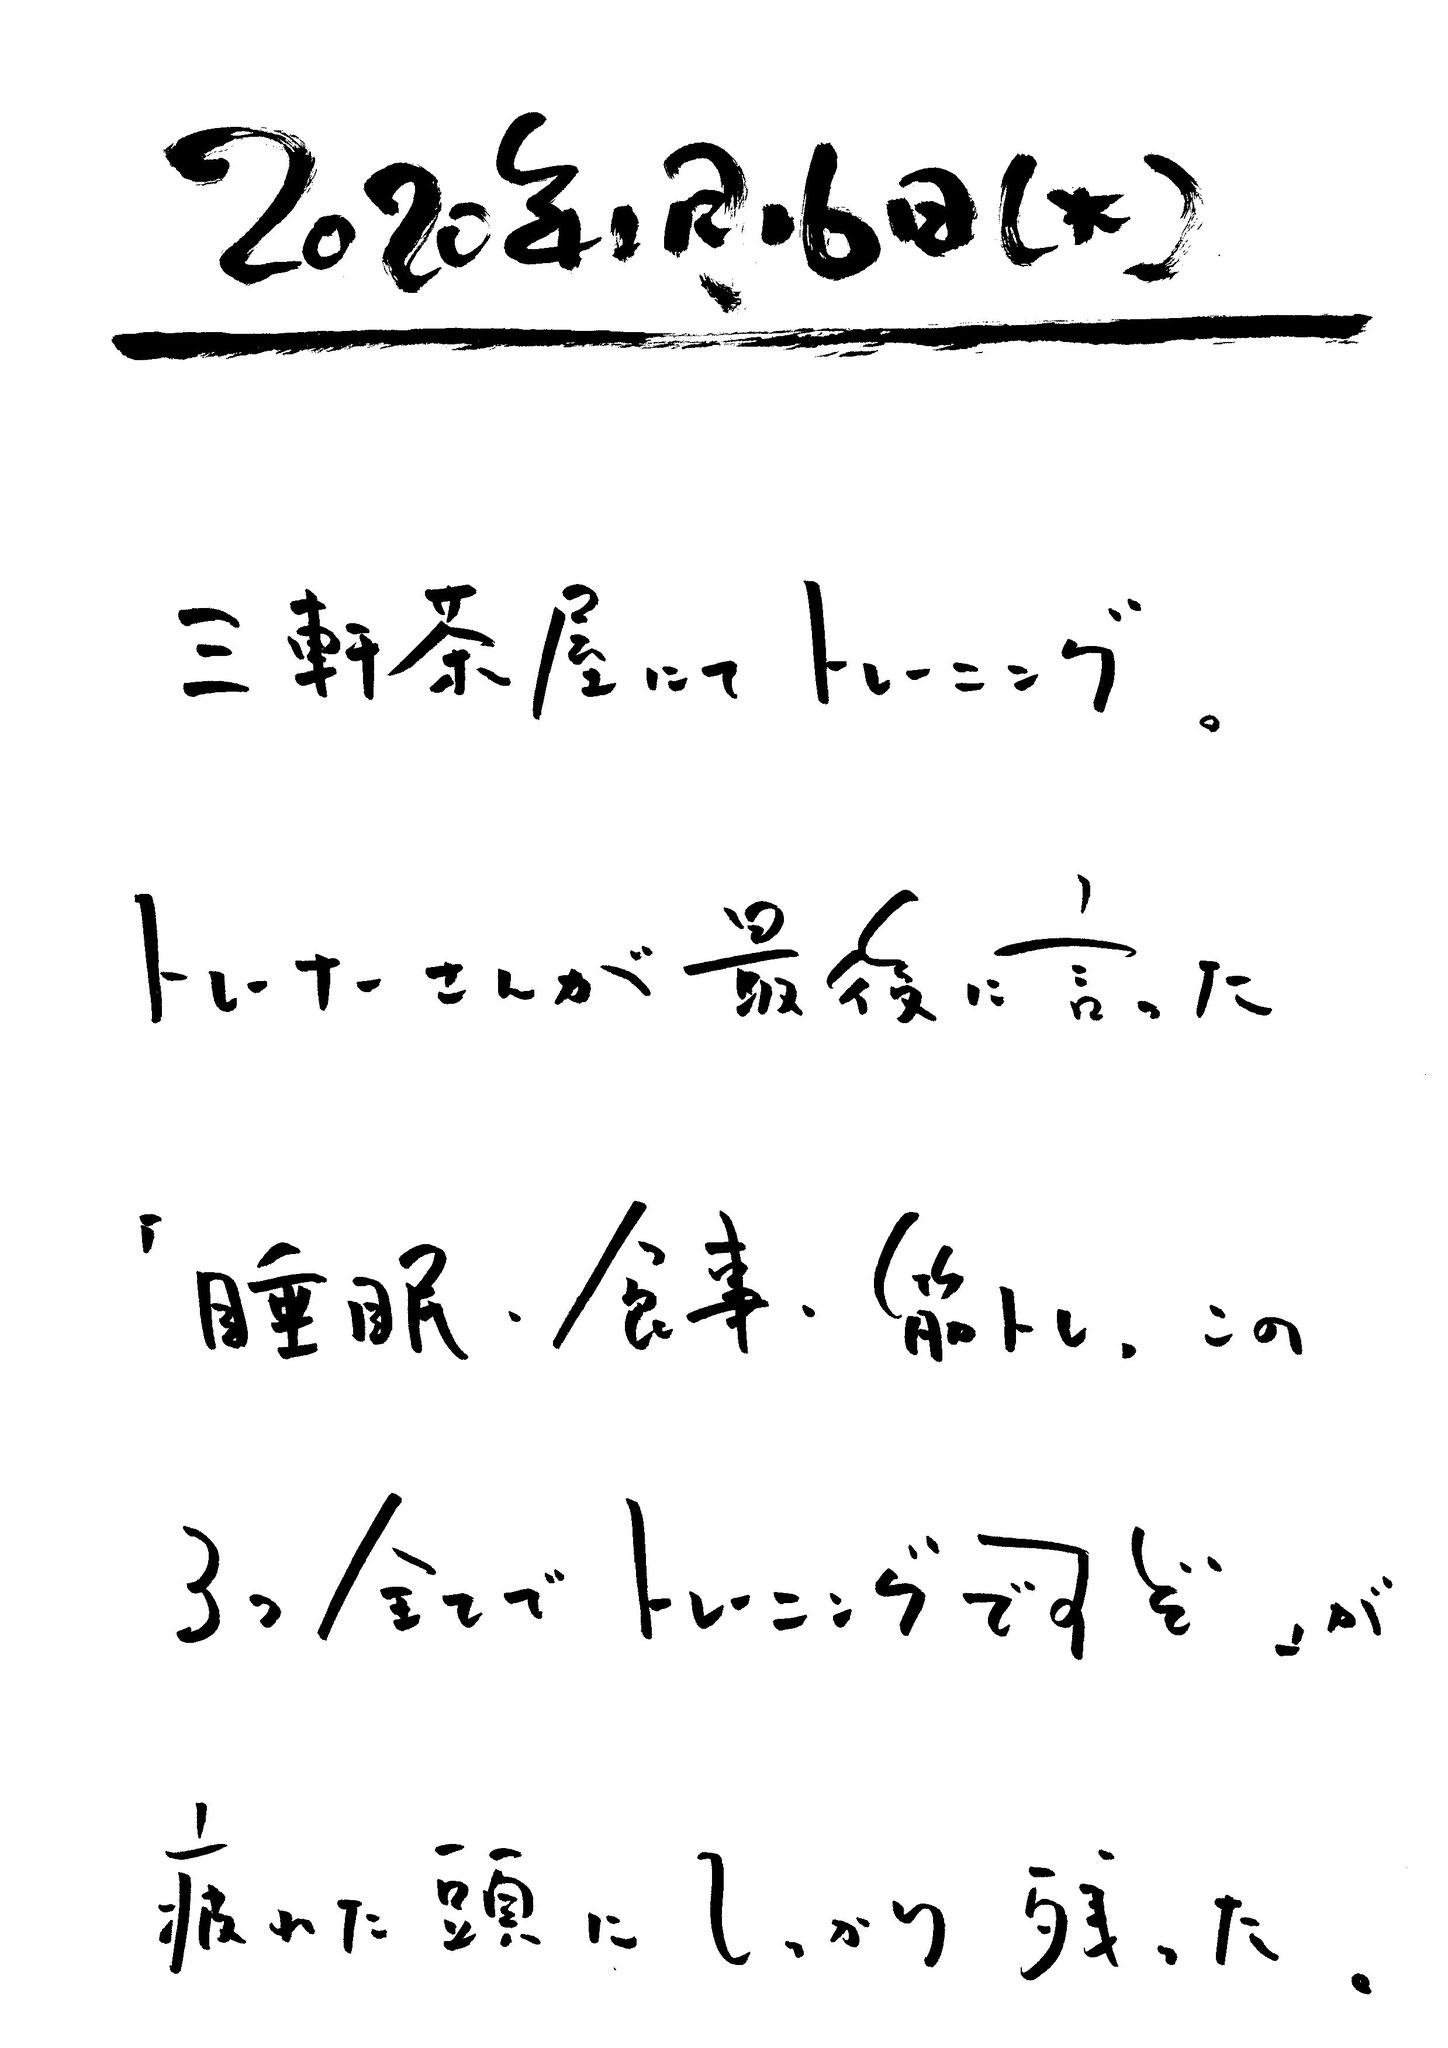 2020年1月16日(木)
三軒茶屋にてトレーニング。
トレーナーさんが最後に言った
「睡眠・食事・筋トレ、この
3つ全てでトレーニングですぞ」が
疲れた頭にしっかり残った。